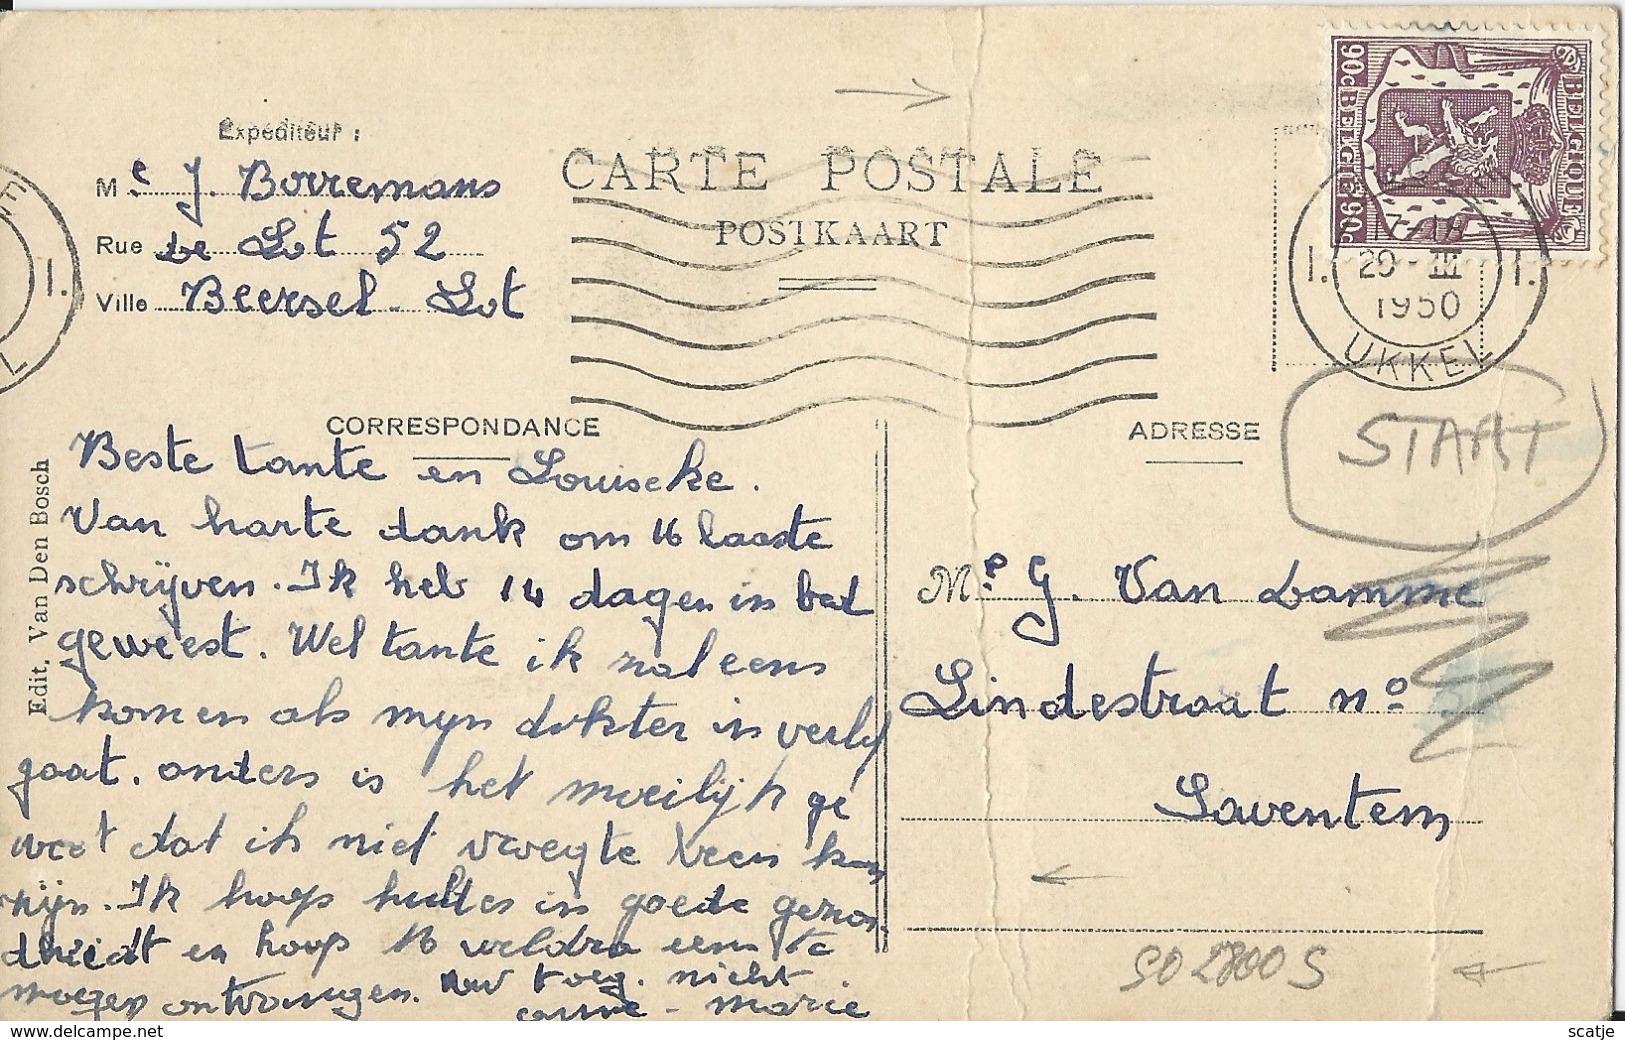 Expéditeur :
Me J. Borremans
Rue de Lot 52
Ville Beersel - Lot
CARTE POSTALE
POSTKAART
BELGIQUE 90c
BELGIE 90c
17-18
29 III
1950
UKKEL
1.
1.
1.
CORRESPONDANCE
ADRESSE
START
Edit. Van Den Bosch
Beste tante en Louiseke.
Van harte dank om U laaste
schrijven. Ik heb 14 dagen in bed
geweest. Wel tante ik zal eens
komen als mijn dokter in verlof
gaat. anders is het moeilijk ge
weet dat ik niet vroegte veen kan
zijn. Ik hoop hulles in goede gezon
dheidt en hoop U weldra eens te
mogen ontvangen. Uw toeg. nicht
anne - marie
Me G. Van Damme
Lindestraat no
Saventem
SO 2800 S
scatje